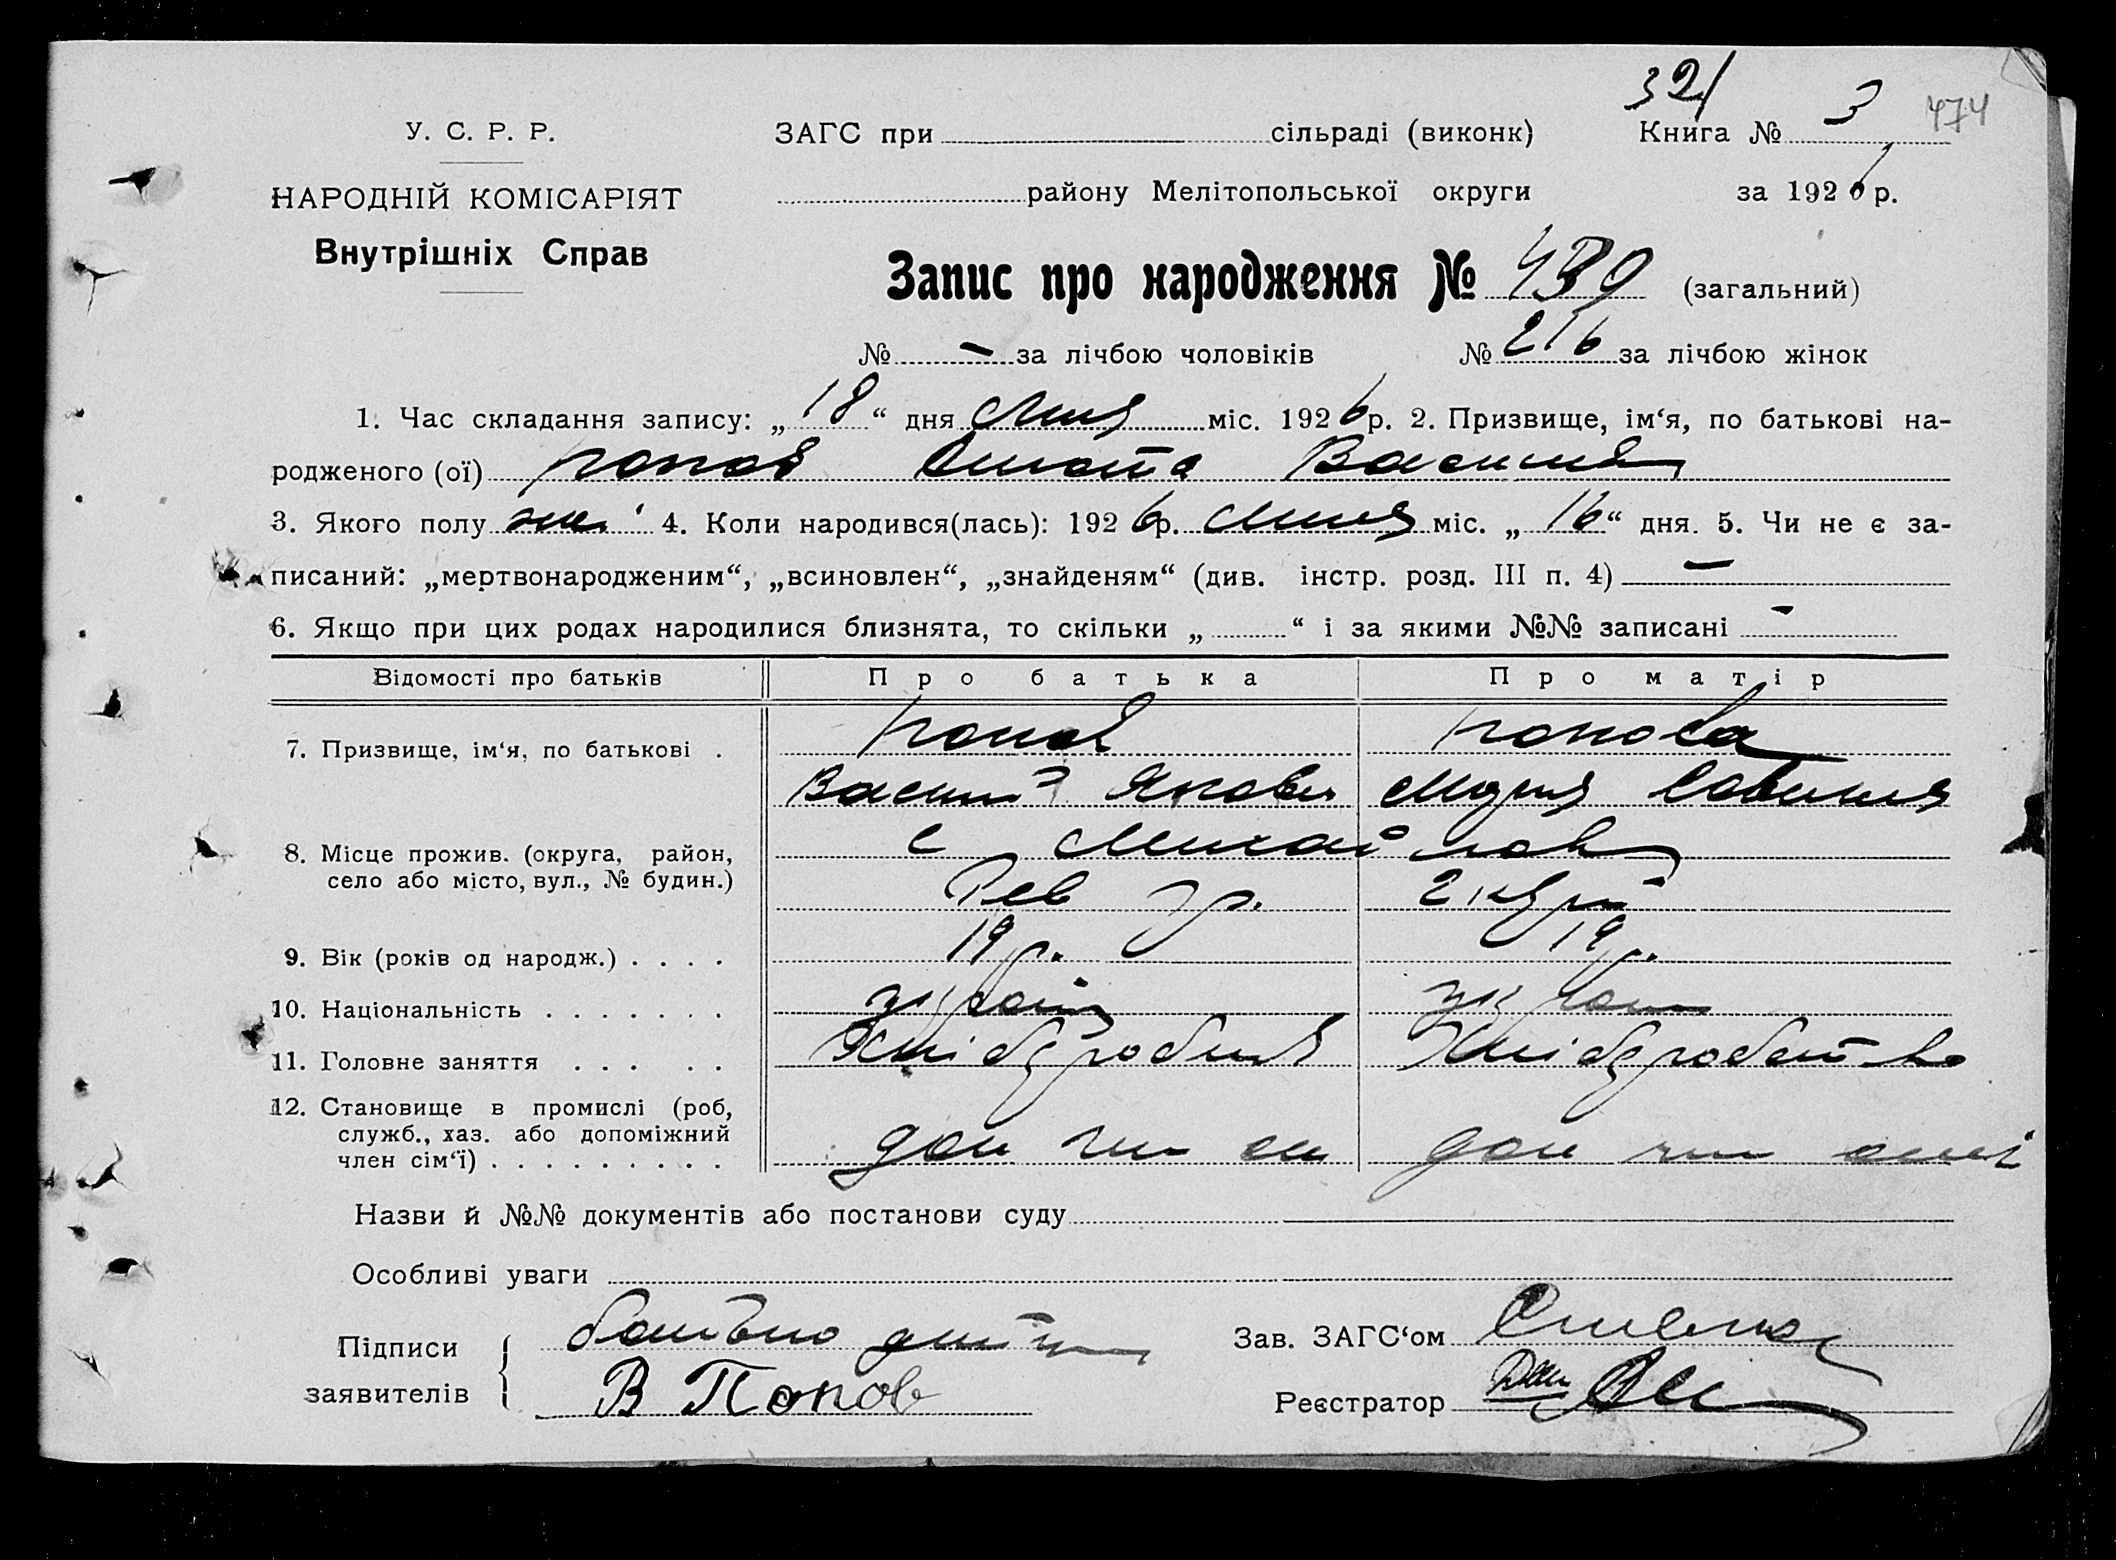 321
У. С. Р. Р. ЗАГС при сільраді (виконк) Книга № 3 474
НАРОДНІЙ КОМІСАРІЯТ району Мелітопольської округи за 1926 р.
Внутрішніх Справ
Запис про народження № 439 (загальний)
№ - за лічбою чоловіків № 216 за лічбою жінок
1. Час складання запису: „ 18 “ дня міс. 1926 р. 2. Призвище, ім‘я, по батькові на-
родженого (ої) Попов Василів
3. Якого полу жін 4. Коли народився(лась): 1926 р. міс. „ 16 “ дня. 5. Чи не є за-
писаний: „мертвонародженим“, „всиновлен“, „знайденям“ (див. інстр. розд. III п. 4) —
6. Якщо при цих родах народилися близнята, то скільки „ “ і за якими №№ записані -
Відомості про батьків Про батька Про матір
7. Призвище, ім‘я, по батькові . Попов Попова
Васил Яковл
8. Місце прожив. (округа, район, с Михайловк
село або місто, вул., № будин.)
9. Вік (років од народж.) . . . . 19 р. 19 р.
10. Національність . . . . . . . україн україн
11. Головне заняття . . . . . Хлібороб Хліборобство
12. Становище в промислі (роб, служб., хаз. або допоміжний член сім‘ї) . . . . . . . . . доп чл сем доп чл
Назви й №№ документів або постанови суду
Особливі уваги
Підписи заявителів батько дитини Зав. ЗАГС‘ом
В Попов Реєстратор